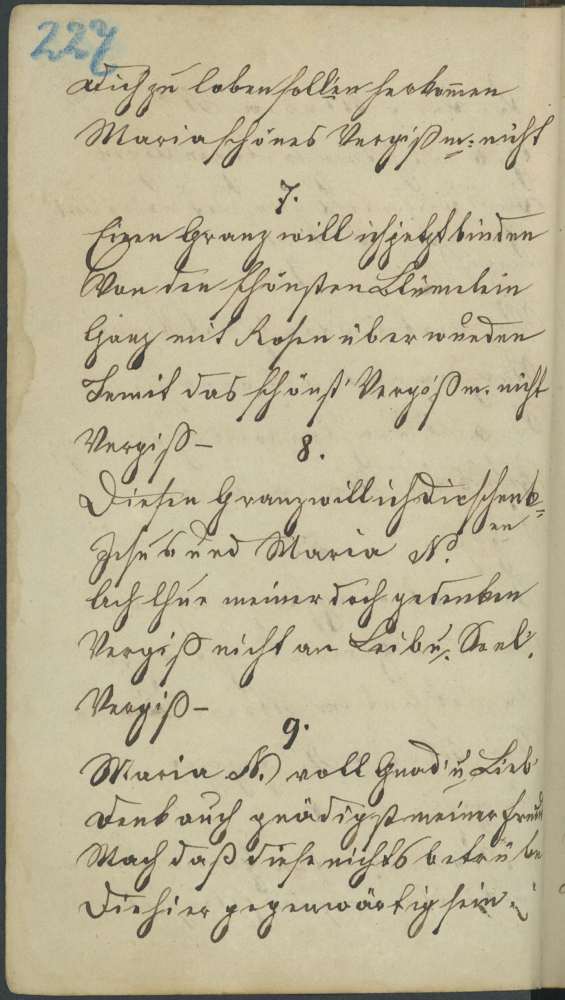 227
Dich zu loben sollen herkom̄en
Maria schönes Vergißm: nicht
7.
Einen Granz will ich jetzt binden
Von den schönsten Blümelein
Ganz mit Rosen überwunden
Damit das schönst' Vergißm. nicht
Vergiß –
8.
Diesen Granz will ich dir schenk=
en
Jesus und Maria N.
Ach thue meiner doch gedenken
Vergiß nicht an Leib u. Seel'.
Vergiß –
9.
Maria N. voll Gnad' u Lieb'
Denk auch gnädigst meiner Freund
Mach daß diese nichts betrübe
Die hier gegenwärtig sein.